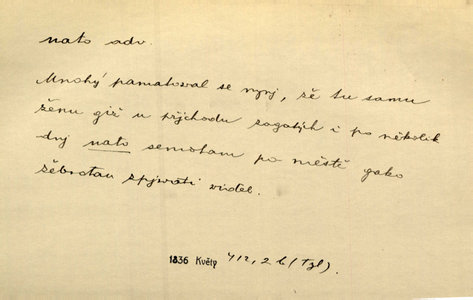 nato adv.
Mnohý pamatoval se nynj, že tu samu
ženu giž u přjchodu zagatých i po několik
dnj nato semotam po městě gako
žebrotau zpjwati widel.
1836 Květy 412, 2 b (Tyl).